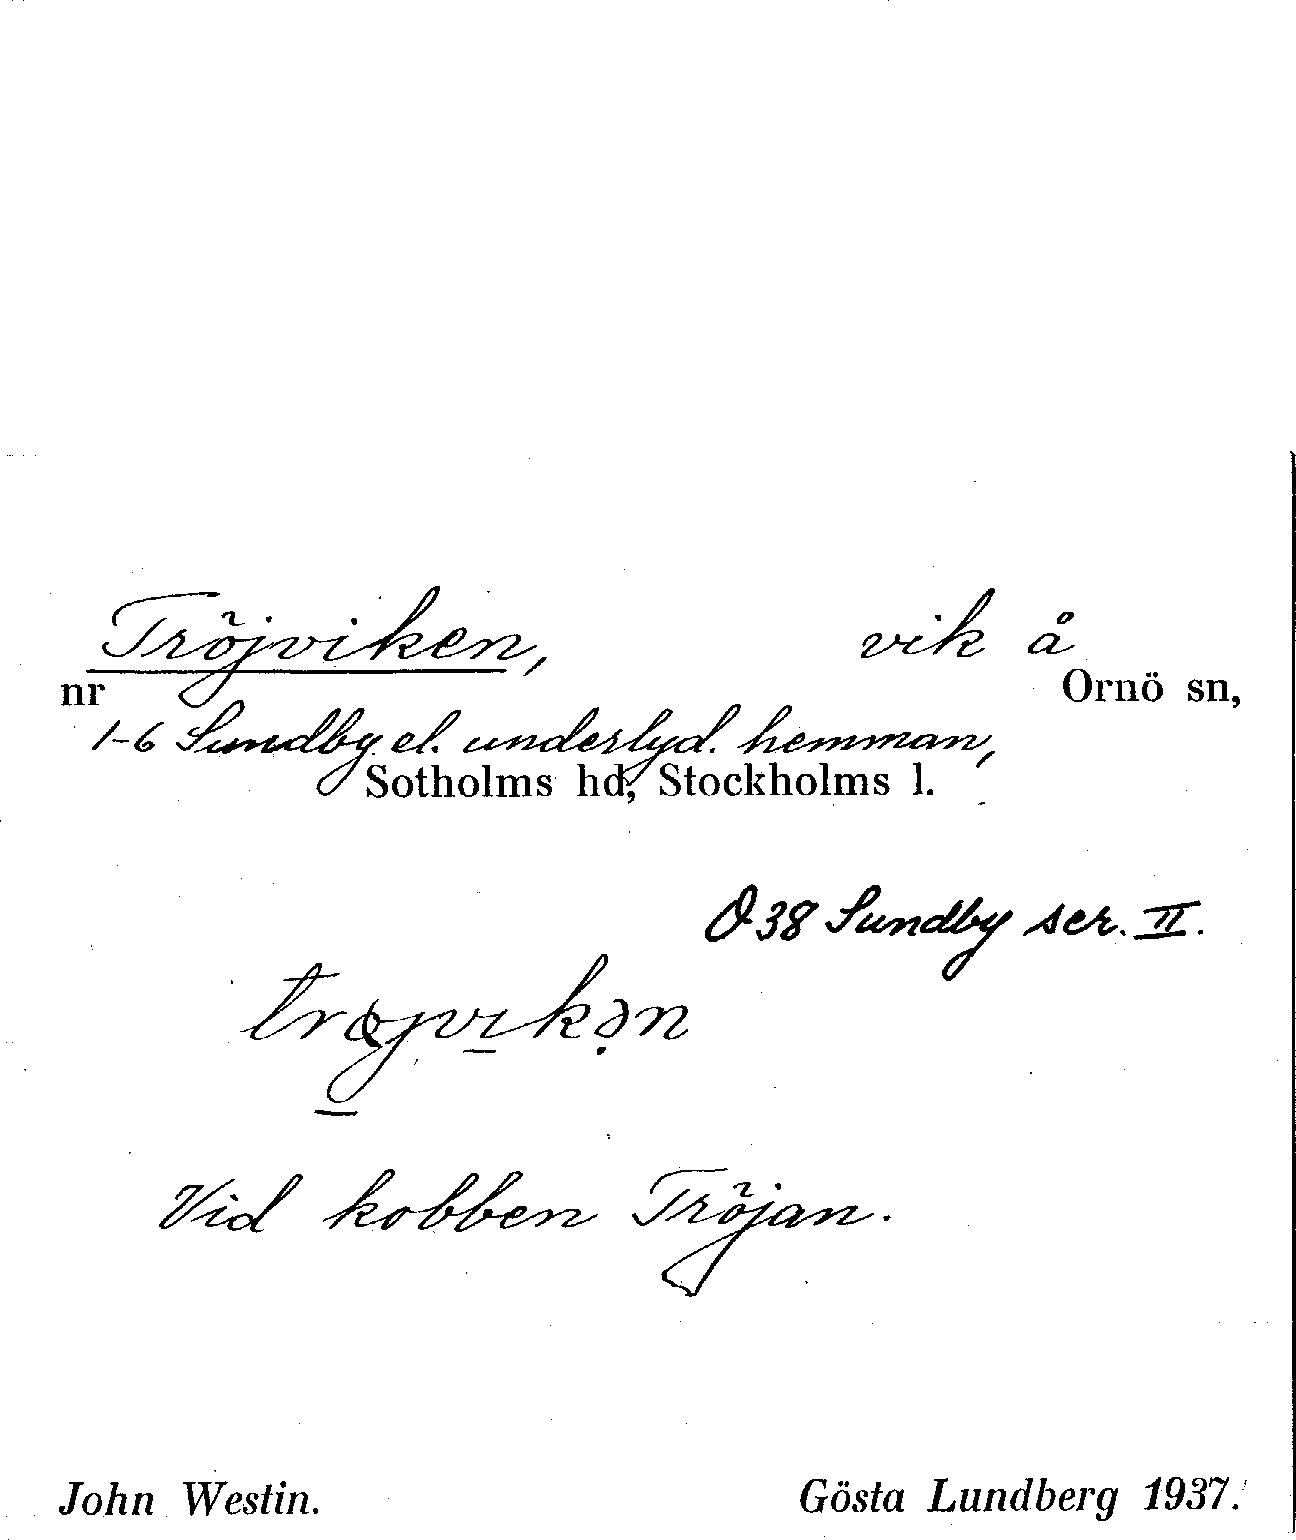 Tröjviken, vik å
nr Ornö sn,
1-6 Sundby el. underlyd. hemman,
Sotholms hd, Stockholms l.
O 38 Sundby ser. II.
trøjvıkən
Vid kobben Tröjan.
John Westin. Gösta Lundberg 1937.